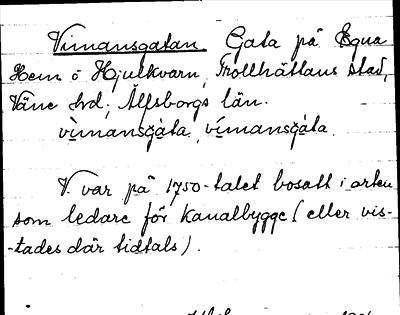 Vimansgatan. Gata på Egna
Hem o Hjulkvarn, Trollhättans stad,
Väne hrd, Älfsborgs län.
vìmansgàta, vímansgàta.
V. var på 1750-talet bosatt i orten
som ledare för kanalbygge (eller vis-
-tades där tidtals).